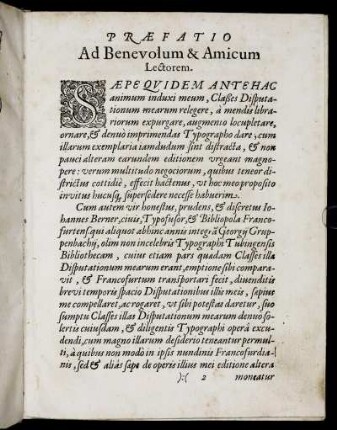 PRÆFATIO
Ad Benevolum & Amicum
Lectorem.
SÆPE QVIDEM ANTEHAC
animum induxi meum, Classes Disputa-
tionum mearum relegere, à mendis libra-
riorum expurgare, augmento locupletare,
ornare, & denuò imprimendas Typographo dare; cum
illarum exemplaria iamdudum sint distracta, & non
pauci alteram earundem editionem vrgeant magno-
pere: verum multitudo negociorum, quibus teneor di-
strictus cottidiè, effecit hactenus, vt hoc meo proposito
invitus hucusq; supersedere necesse habuerim.
Cum autem vir honestus, prudens, & discretus Io-
hannes Berner, civis, Typosusor, & Bibliopola Franco-
furtensqui aliquot abhinc annis integrā Georgij Grup-
penbachij, olim non incelebris Typographi Tubingensis
Bibliothecam, cuius etiam pars quadam Classes illæ
Disputationum mearum erant, emptione sibi compara-
vit, & Francofurtum transportari fecit, divenditis
brevi temporis spacio Disputationibus illis meis, sæpius
me compellaret, ac rogaret, vt sibi potestas daretur, suo
sumptu Classes illas Disputationum mearum denuo so-
lertis cuiusdam, & diligentis Typographi operâ excu-
dendi, cum magno illarum desiderio teneantur permul-
ti, à quibus non modò in ipsis nundinis Francofurdia-
nis, sed & aliàs sæpe de operis illius mei editione altera
):( 2 moneatur